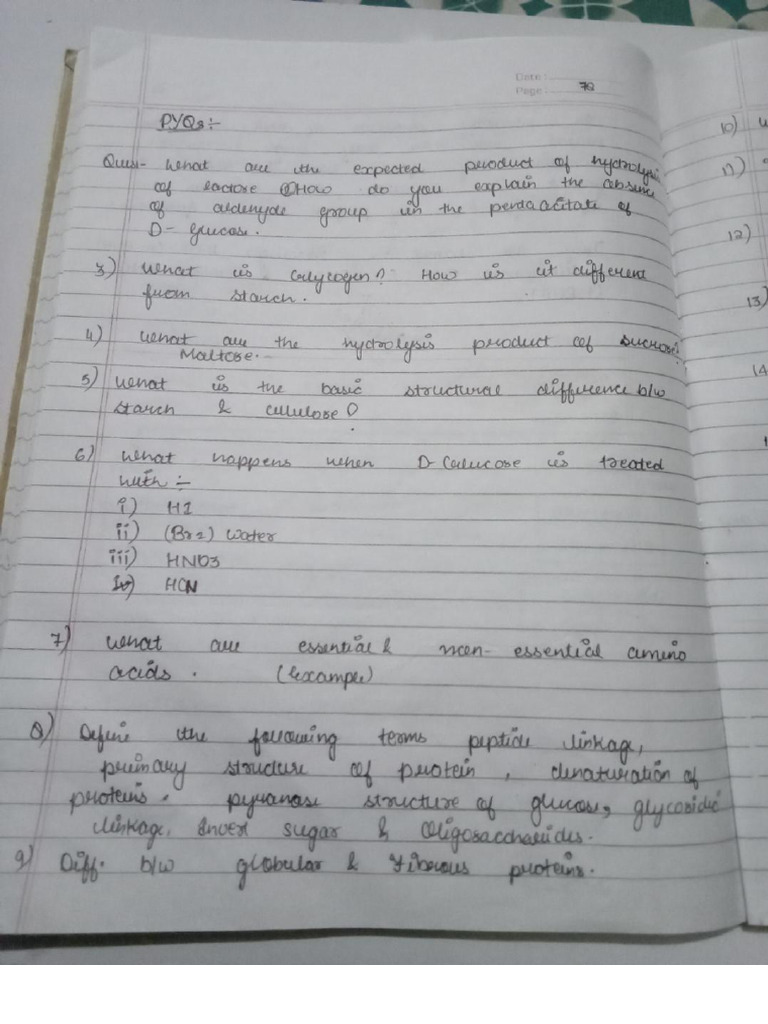 Date :
Page : 78
PYQs :-
Ques- What are the expected product of hydrolysis
of lactose ② How do you explain the absence
of aldehyde group in the pentaacitate of
D- glucose.
3) What is Galycogen? How is it different
from starch.
4) What are the hydrolysis product of sucrose
Maltose.-
5) What is the basic structural difference b/w
starch & cellulose?
6) What happens when D- Galucose is treated
with :-
i) HI
ii) (Br2) water
iii) HNO3
iv) HCN
7) What are essential & non- essential amino
acids. (Example)
8) Define the following terms peptide linkage,
primary structure of protein, denaturation of
proteins. pyranase structure of glucose, glycosidic
linkage, Invert sugar & Oligosaccharides.
9) Diff. b/w globular & Fiberous proteins.
10)
11)
12)
13)
14